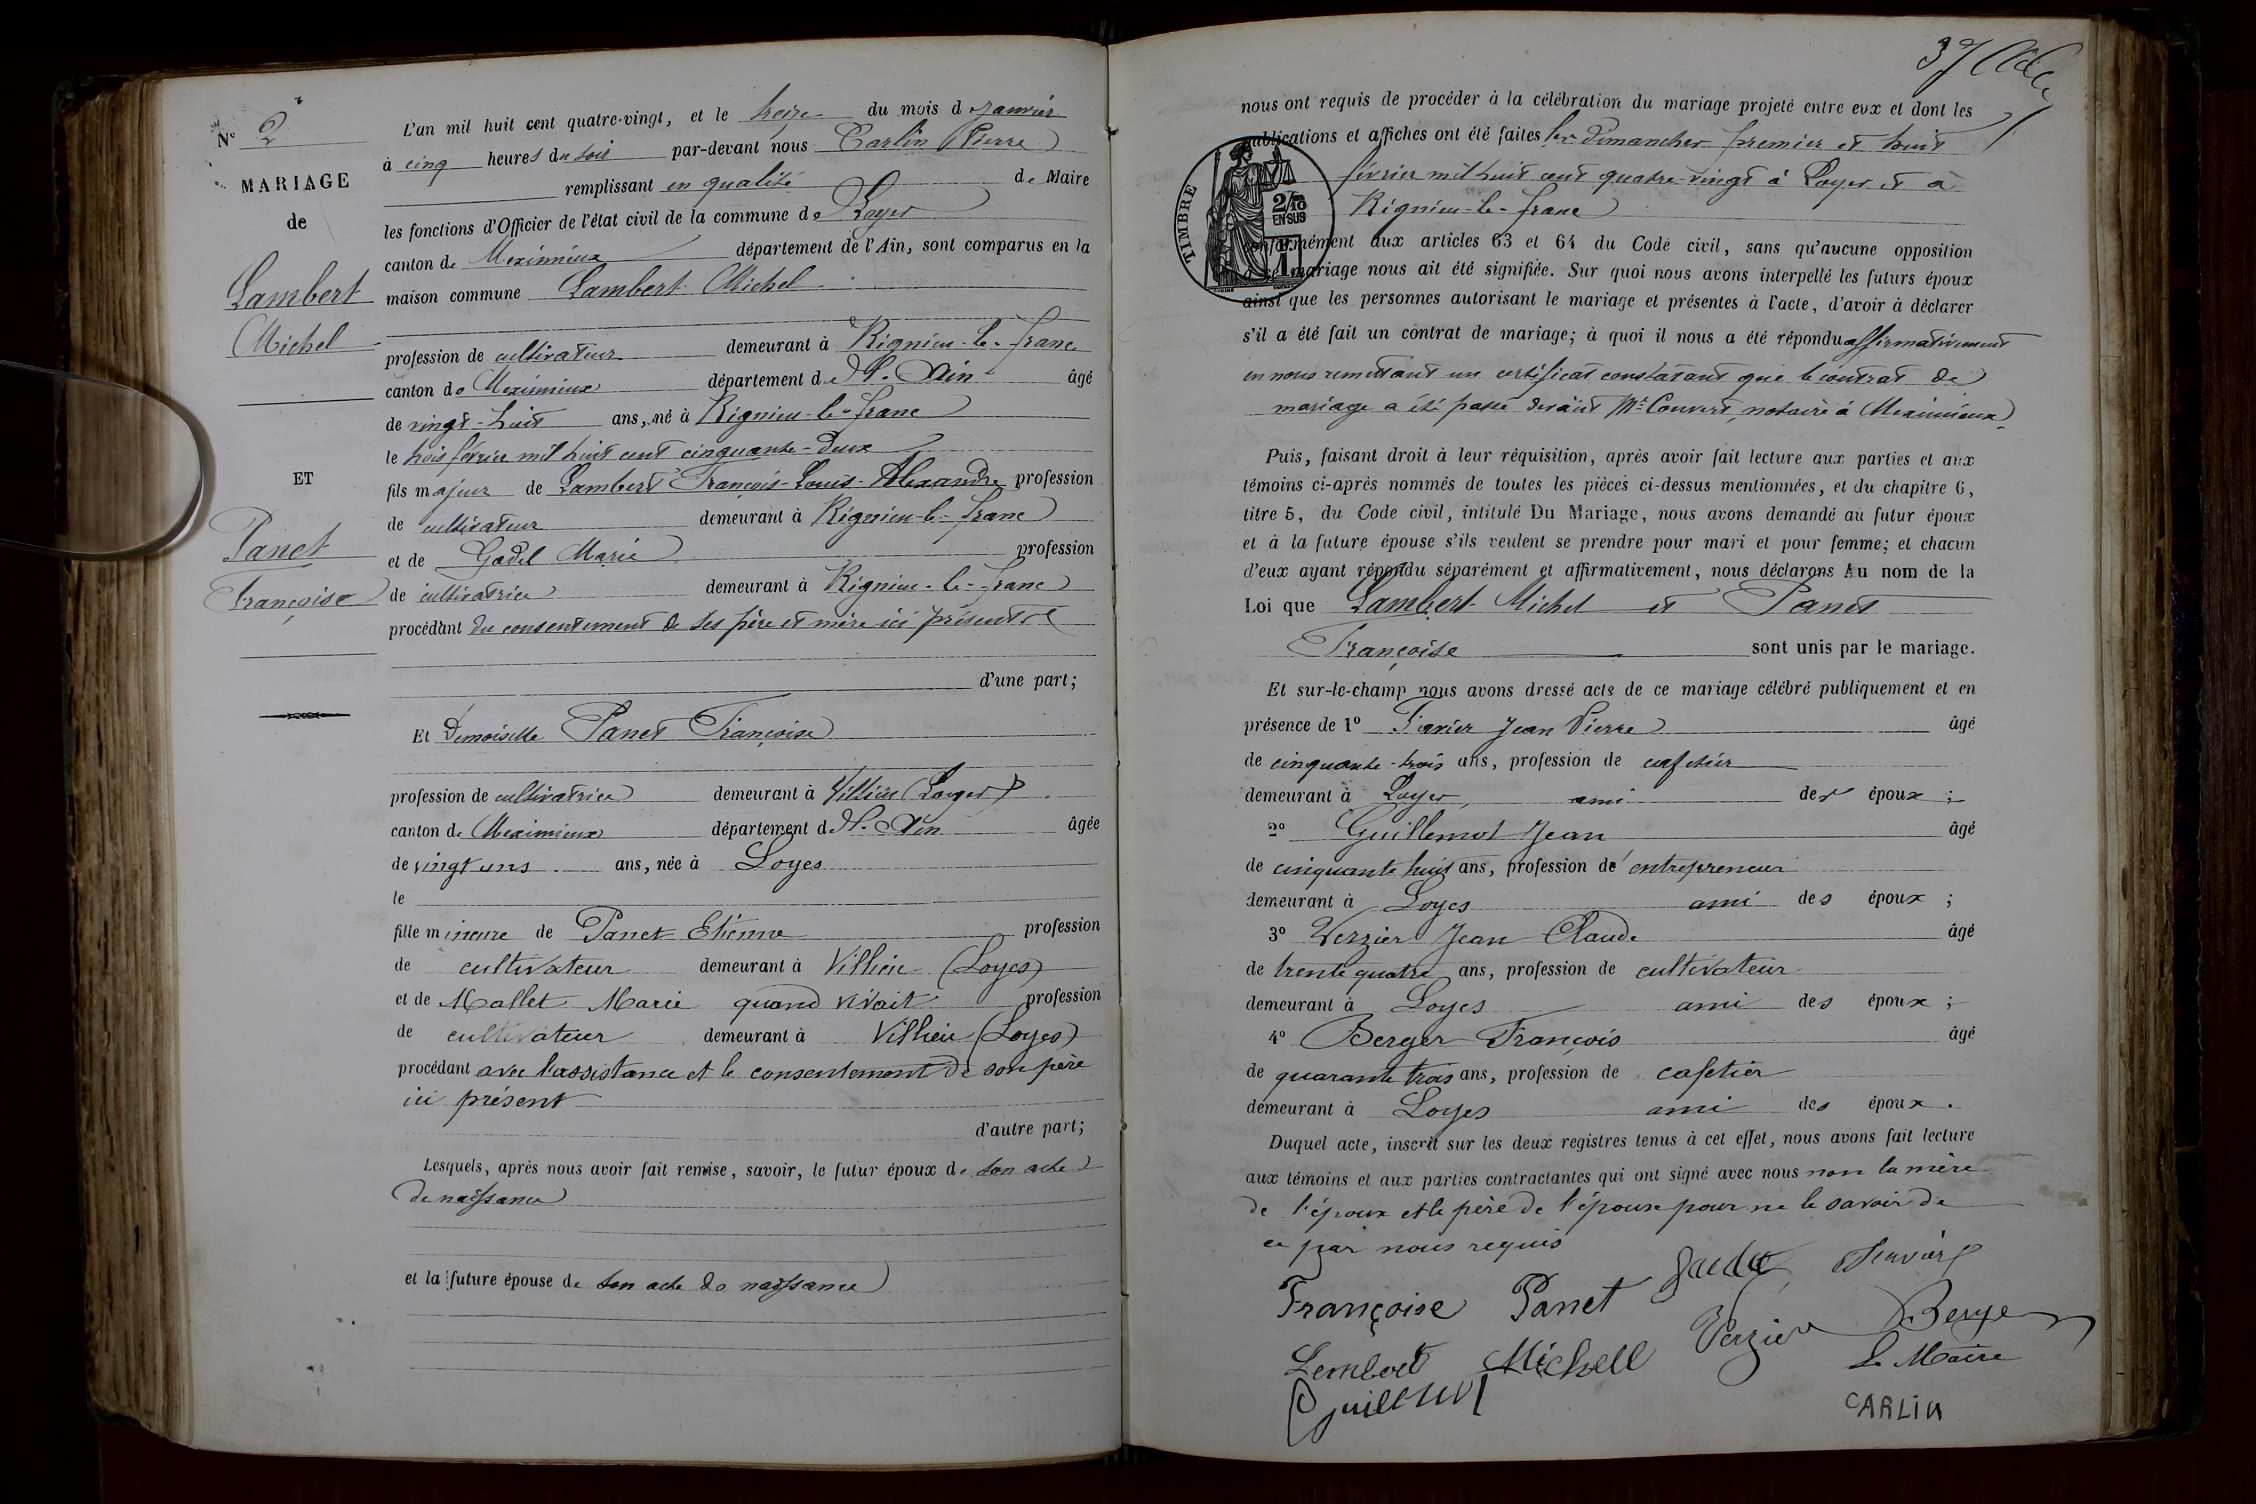 N° 2
MARIAGE
de
Lambert
Michel
ET
Panet
Françoise
L'an mil huit cent quatre-vingt, et le treize du mois d janvier
à cinq heures du soir par-devant nous Carlin Pierre
remplissant en qualité de Maire
les fonctions d'Officier de l'état civil de la commune de Loyes
canton de Meximieux département de l'Ain, sont comparus en la
maison commune Lambert Michel
profession de cultivateur demeurant à Rignieu-le-franc
canton de Meximieux département de l'Ain âgé
de vingt-huit ans, né à Rignieu-le-franc
le trois février mil huit cent cinquante-deux
fils majeur de Lambert François-Louis-Alexandre profession
de cultivateur demeurant à Rignieu-le-franc
et de Gadel Marie profession
de cultivatrice demeurant à Rignieu-le-franc
procédant du consentement de ses père et mère ici présents
d'une part;
Et Demoiselle Panet Françoise
profession de cultivatrice demeurant à Villieu (Loyes)
canton de Meximieux département de l'Ain âgée
de vingt uns ans, née à Loyes
le
fille mineure de Panet Etienne profession
de cultivateur demeurant à Villieu (Loyes)
et de Mallet Marie quand vivait profession
de cultivateur demeurant à Villieu (Loyes)
procédant avec l'assistance et le consentement de son père
ici présent
d'autre part;
Lesquels, après nous avoir fait remise, savoir, le futur époux de son acte
de naissance
et la future épouse de son acte de naissance
37
nous ont requis de procéder à la célébration du mariage projeté entre eux et dont les
publications et affiches ont été faites les dimanches premier et huit
février mil huit cent quatre-vingt à Loyes et à
Rignieu-le-franc
TIMBRE
2/10
EN SUS
conformément aux articles 63 et 64 du Code civil, sans qu'aucune opposition
à ce mariage nous ait été signifiée. Sur quoi nous avons interpellé les futurs époux
ainsi que les personnes autorisant le mariage et présentes à l'acte, d'avoir à déclarer
s'il a été fait un contrat de mariage; à quoi il nous a été répondu affirmativement
en nous remettant un certificat constatant que le contrat de
mariage a été passé devant Me Convert, notaire à Meximieux
Puis, faisant droit à leur réquisition, après avoir fait lecture aux parties et aux
témoins ci-après nommés de toutes les pièces ci-dessus mentionnées, et du chapitre 6,
titre 5, du Code civil, intitulé Du Mariage, nous avons demandé au futur époux
et à la future épouse s'ils veulent se prendre pour mari et pour femme; et chacun
d'eux ayant répondu séparément et affirmativement, nous déclarons Au nom de la
Loi que Lambert Michel et Panet
Françoise sont unis par le mariage.
Et sur-le-champ nous avons dressé acte de ce mariage célébré publiquement et en
présence de 1° Favier Jean Pierre âgé
de cinquante-trois ans, profession de cafetier
demeurant à Loyes, ami des époux ;
2° Guillemot Jean âgé
de cinquante huit ans, profession de entrepreneur
demeurant à Loyes ami des époux ;
3° Verzier Jean Claude âgé
de trente quatre ans, profession de cultivateur
demeurant à Loyes ami des époux ;
4° Berger François âgé
de quarante trois ans, profession de cafetier
demeurant à Loyes ami des époux.
Duquel acte, inscrit sur les deux registres tenus à cet effet, nous avons fait lecture
aux témoins et aux parties contractantes qui ont signé avec nous non la mère
de l'époux et le père de l'épouse pour ne le savoir de
ce par nous requis
Favier
Françoise Panet
Verzier Berger
Lembert Michell
Le Maire
Guillemot
CARLIN